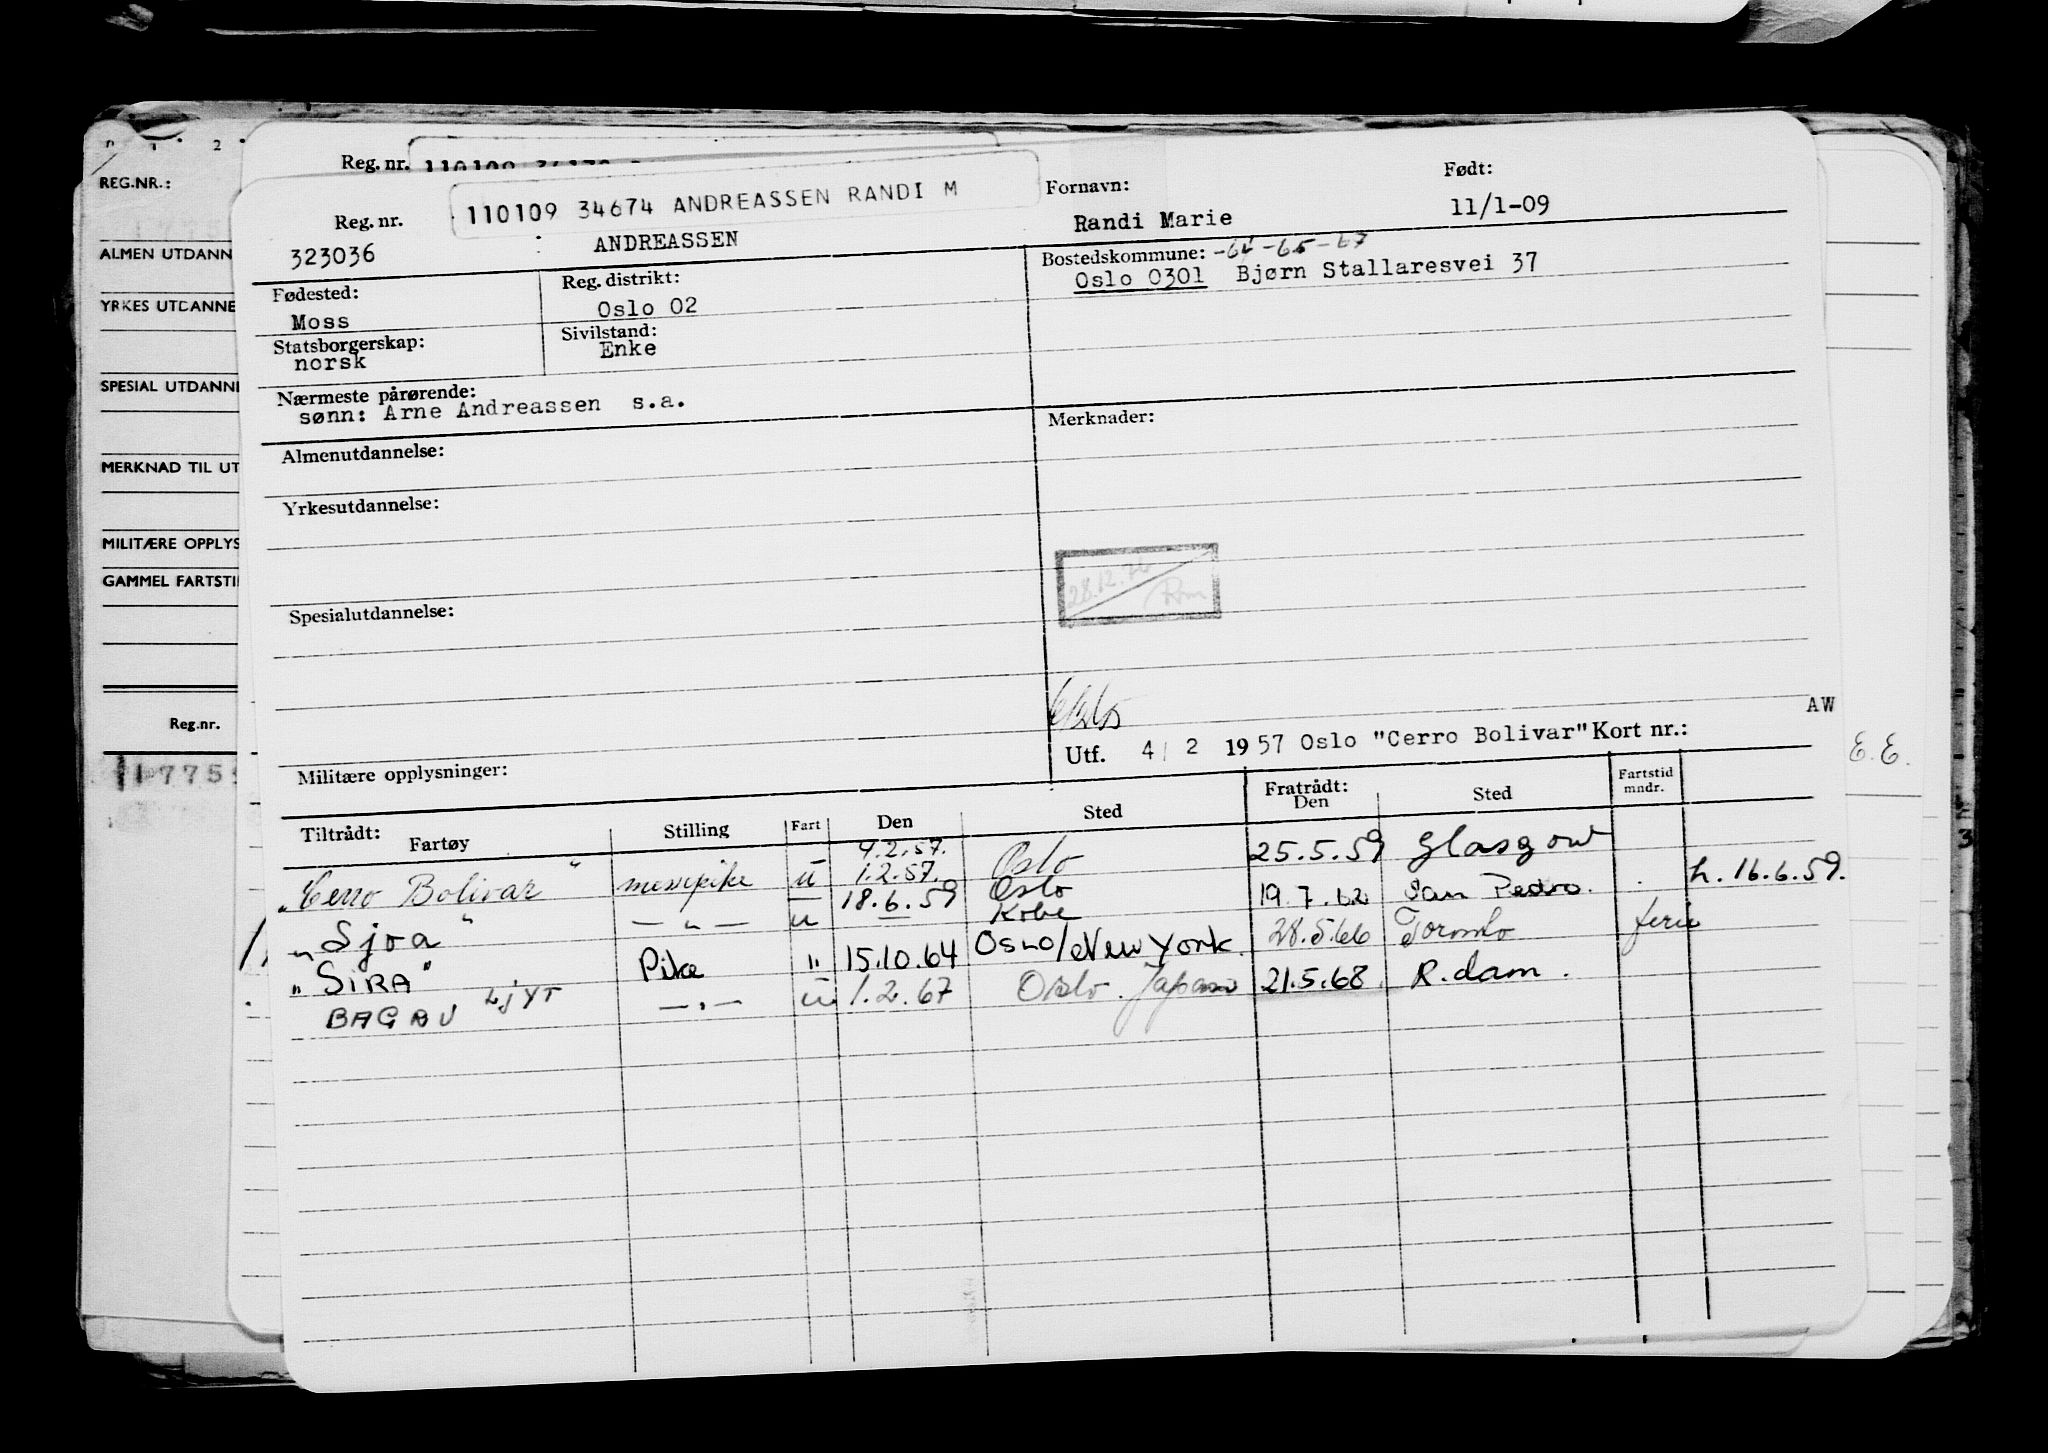 REG.NR.:
ALMEN UTDANN
YRKES UTDANNE
SPESIAL UTDANNE
MERKNAD TIL UT
MILITÆRE OPPLYS
GAMMEL FARTSTI
Reg.nr.
Reg. nr.
Reg. nr. 110109 34674 ANDREASSEN RANDI M
Fornavn: Født:
323036 ANDREASSEN Randi Marie 11/1-09
Fødested: Reg. distrikt: Bostedskommune: -64-65-67
Moss Oslo 02 Oslo 0301 Bjørn Stallaresvei 37
Statsborgerskap: Sivilstand:
norsk Enke
Nærmeste pårørende:
sønn: Arne Andreassen s.a.
Merknader:
Almenutdannelse:
Yrkesutdannelse:
28.12.76
Spesialutdannelse:
AW
Militære opplysninger: Utf. 4/ 2 1957 Oslo "Cerro Bolivar" Kort nr.:
E.E.
Tiltrådt: Fratrådt: Fartstid mndr.
Fartøy Stilling Fart Den Sted Den Sted
4.2.57.
"Cerro Bolivar" messepike u 1.2.57. Oslo 25.5.59 Glasgow
"Sjoa" — " — u 18.6.59 Oslo Kobe 19.7.62 San Pedro. h. 16.6.59.
"SIRA" Pike " 15.10.64 Oslo/New York. 28.5.66 Toronto ferie
BAGAU LJYT — " — u 1.2.67 Oslo. Japan 21.5.68 R.dam.